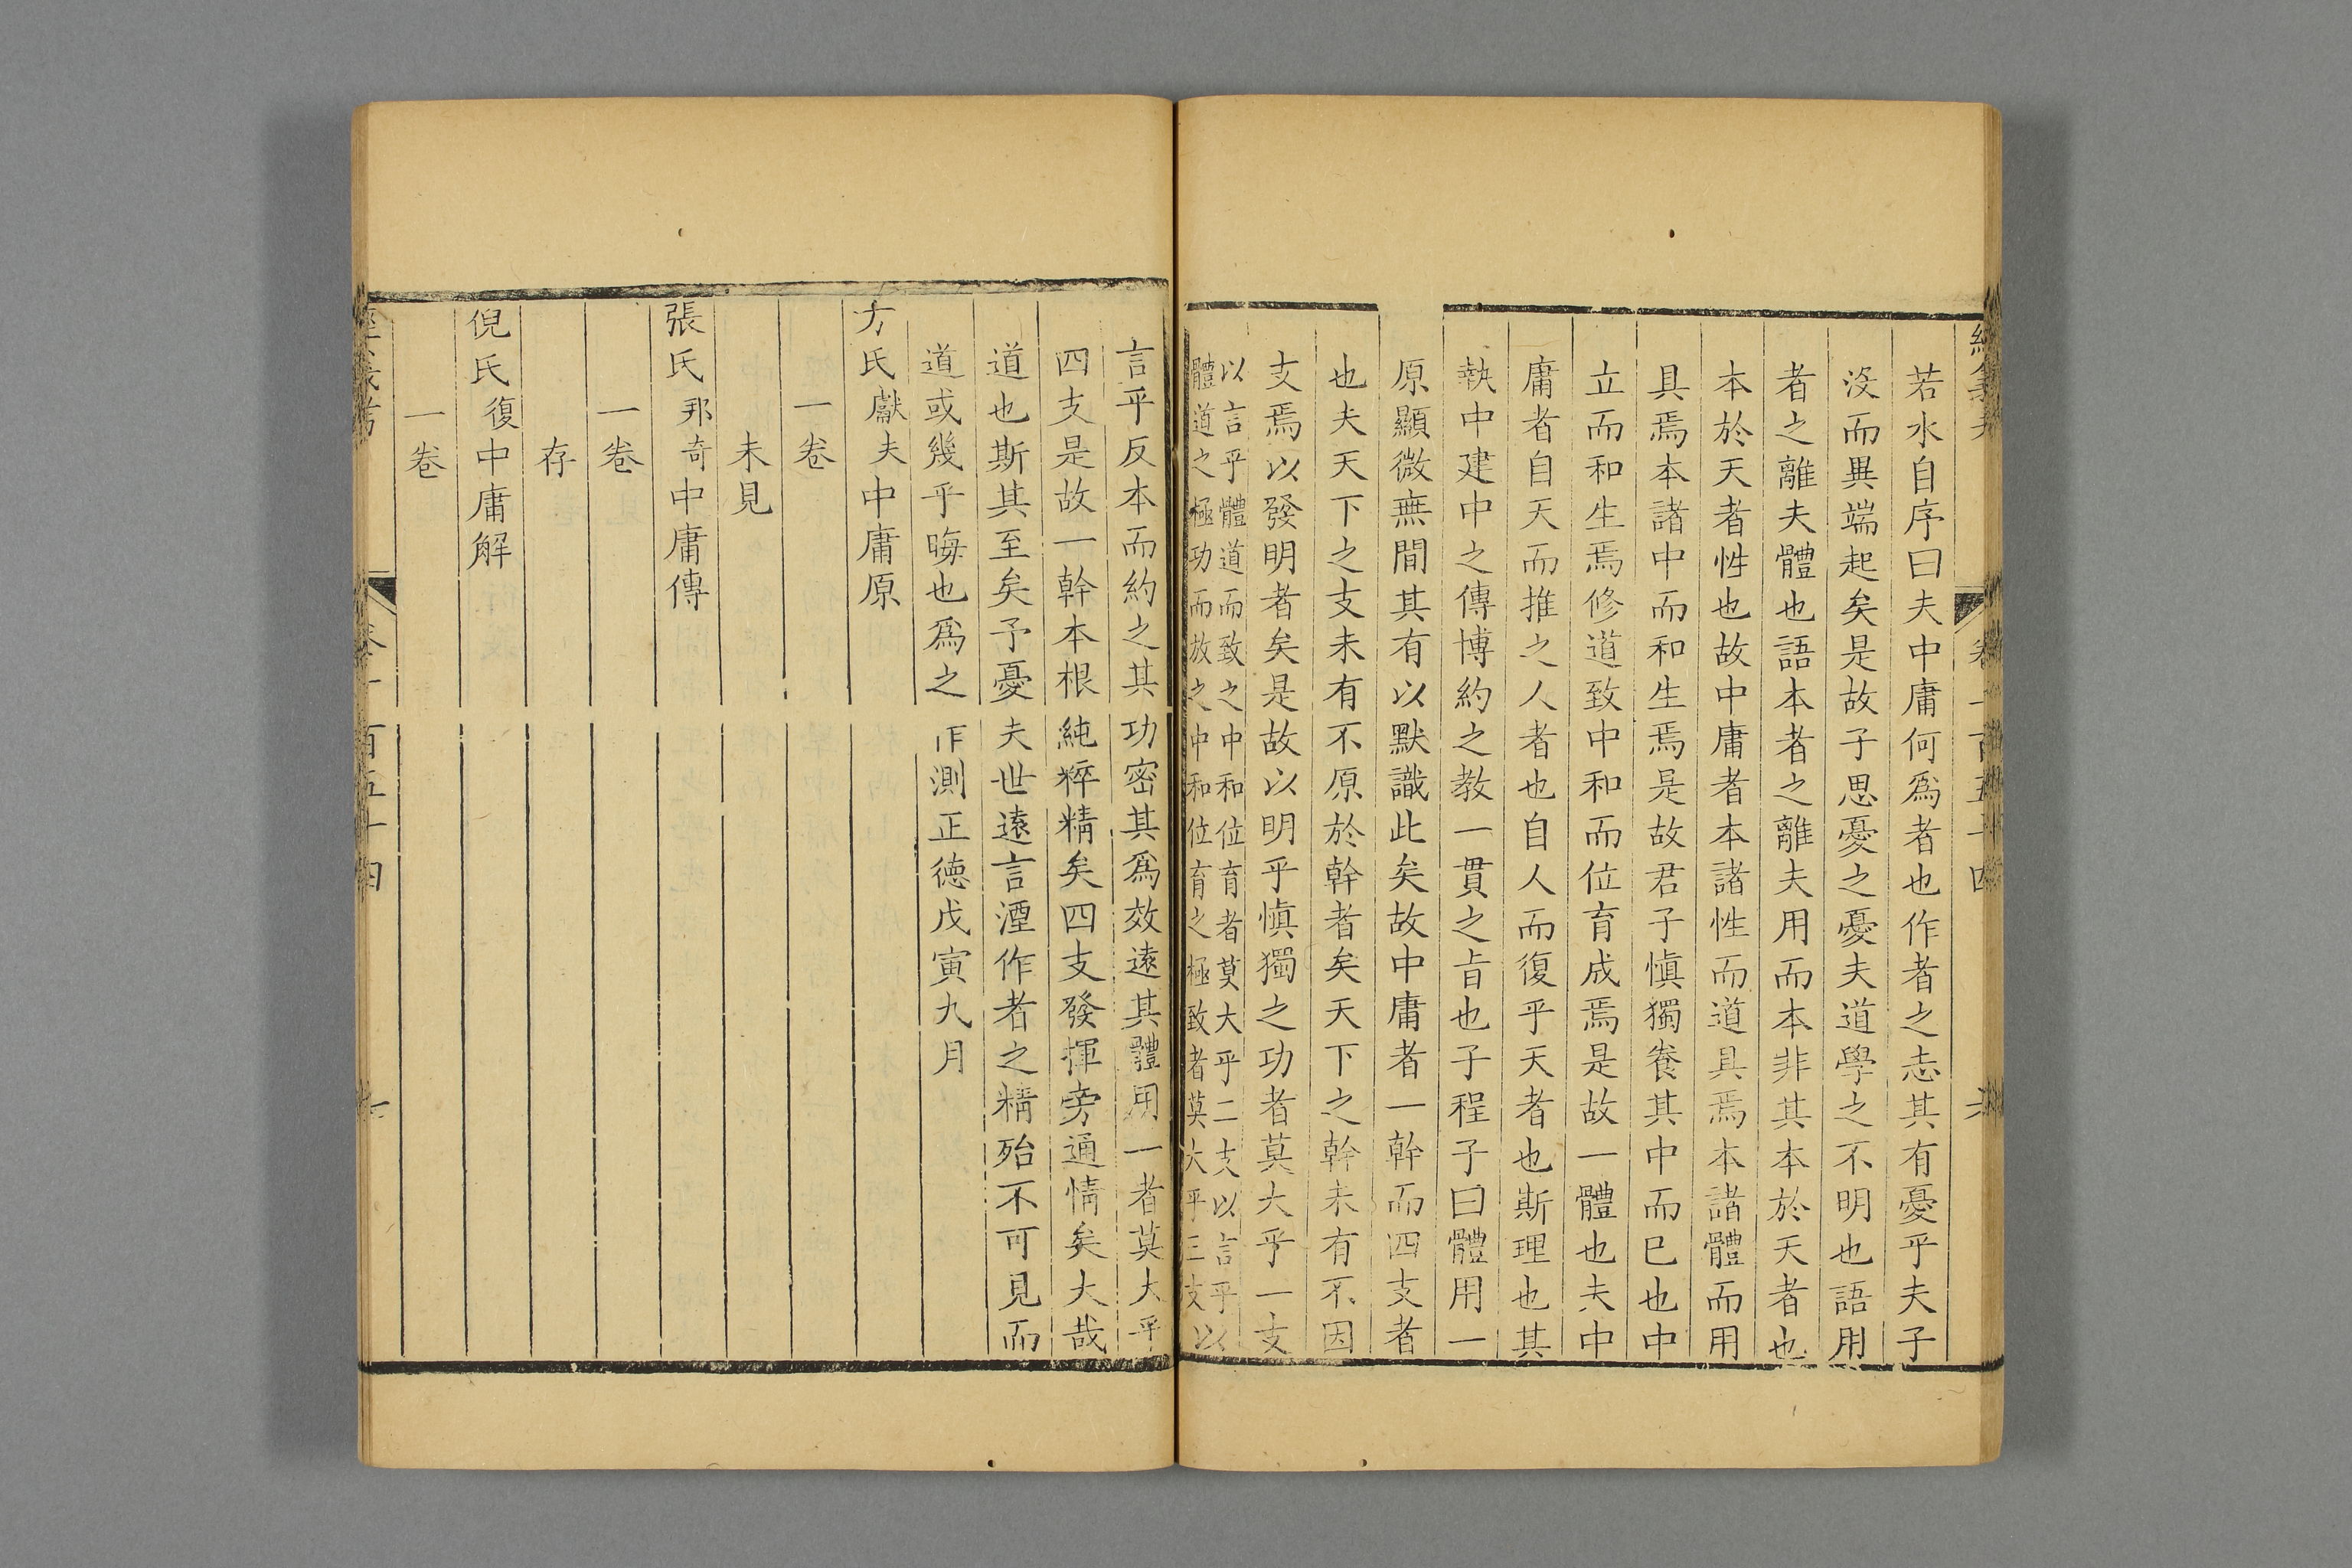 若水自序曰夫中庸何爲者也作者之志其有憂乎夫子
沒而異端起矣是故子思憂之憂夫道學之不明也語用
者之離夫體也語本者之離夫用而本非其本於天者也
本於天者性也故中庸者本諸性而道具焉本諸體而用
具焉本諸中而和生焉是故君子愼獨養其中而已也中
立而和生焉修道致中和而位育成焉是故一體也夫中
庸者自天而推之人者也自人而復乎天者也斯理也其
執中建中之傳博約之教一貫之旨也子程子曰體用一
原顯微無間其有以默識此矣故中庸者一幹而四支者
也夫天下之支未有不原於幹者矣天下之幹未有不因
支焉以發明者矣是故以明乎愼獨之功者莫大乎一支
以言乎體道而致之中和位育者莫大乎二支以言乎以
體道之極功而放之中和位育之極致者莫大乎三支以
言乎反本而約之其功密其爲效遠其體用一者莫大乎
四支是故一幹本根純粹精矣四支發揮旁通情矣大哉
道也斯其至矣予憂夫世遠言湮作者之精殆不可見而
道或幾乎晦也爲之作測正德戊寅九月
方氏獻夫中庸原
一卷
未見
張氏邦奇中庸傳
一卷
存
倪氏復中庸解
一卷